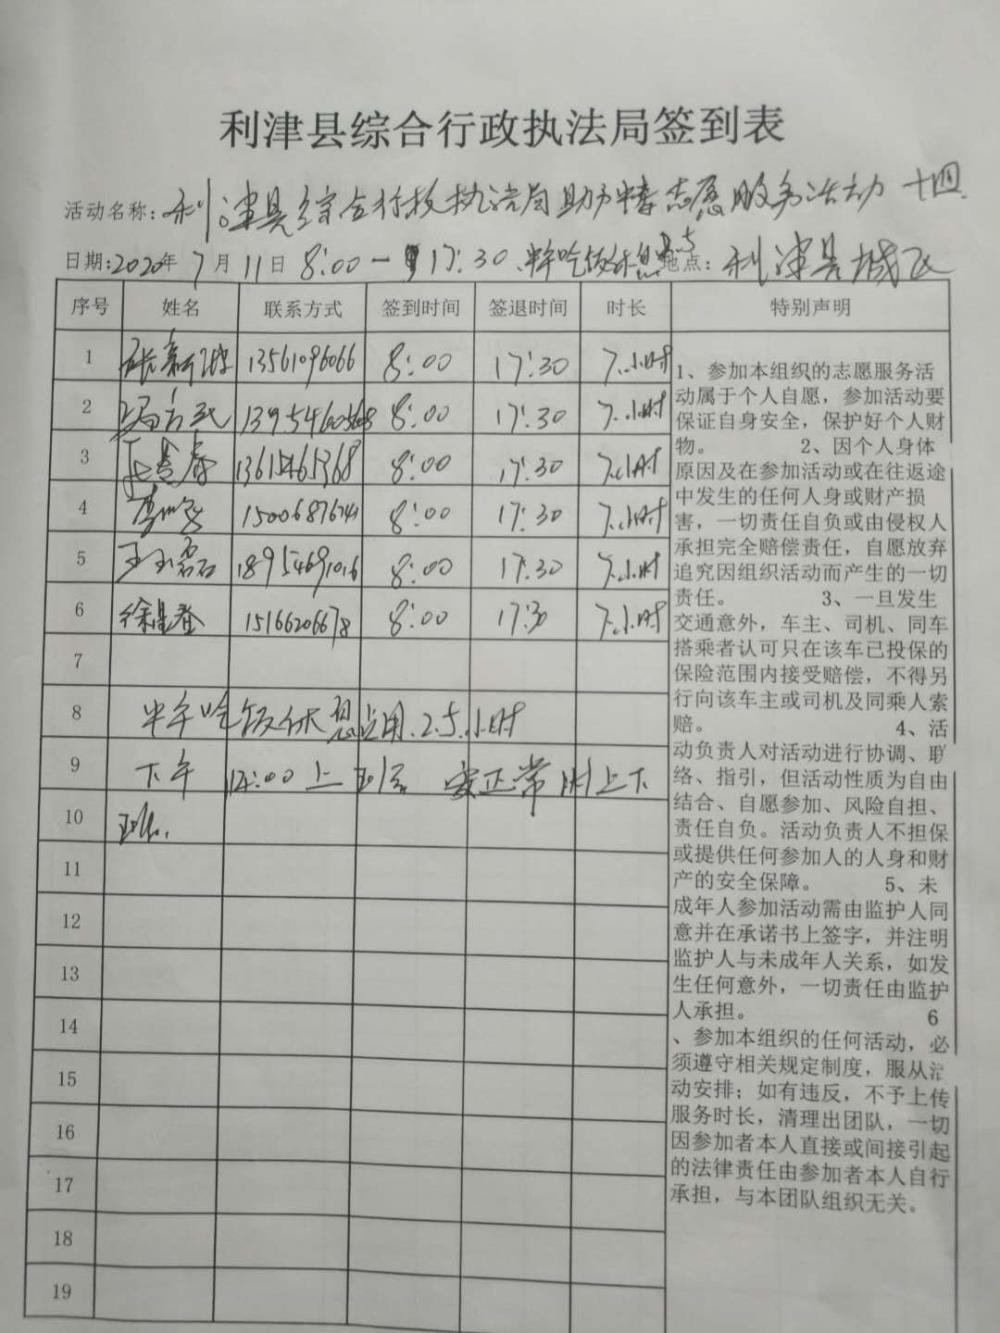 利津县综合行政执法局签到表
活动名称：利津县综合行政执法局助力 志愿服务活动 十四
日期：2020年 7月 11日 8:00—17:30 吃饭休息2.5 地点：利津县城区
序号 姓名 联系方式 签到时间 签退时间 时长 特别声明
1 13561096066 8:00 17:30 7小时
2 8:00 17:30 7小时
3 8:00 17:30 7小时
4 8:00 17:30 7小时
5 王玉磊 18954691016 8:00 17:30 7小时
6 15166206678 8:00 17:30 7小时
7
8 中午吃饭休息占用2.5小时
9 下午 上班后 按正常时上下
10 班。
11
12
13
14
15
16
17
18
19
1、参加本组织的志愿服务活
动属于个人自愿，参加活动要
保证自身安全，保护好个人财
物。 2、因个人身体
原因及在参加活动或在往返途
中发生的任何人身或财产损
害，一切责任自负或由侵权人
承担完全赔偿责任，自愿放弃
追究因组织活动而产生的一切
责任。 3、一旦发生
交通意外，车主、司机、同车
搭乘者认可只在该车已投保的
保险范围内接受赔偿，不得另
行向该车主或司机及同乘人索
赔。 4、活
动负责人对活动进行协调、联
络、指引，但活动性质为自由
结合、自愿参加、风险自担、
责任自负。活动负责人不担保
或提供任何参加人的人身和财
产的安全保障。 5、未
成年人参加活动需由监护人同
意并在承诺书上签字，并注明
监护人与未成年人关系，如发
生任何意外，一切责任由监护
人承担。 6
、参加本组织的任何活动，必
须遵守相关规定制度，服从活
动安排；如有违反，不予上传
服务时长，清理出团队，一切
因参加者本人直接或间接引起
的法律责任由参加者本人自行
承担，与本团队组织无关。